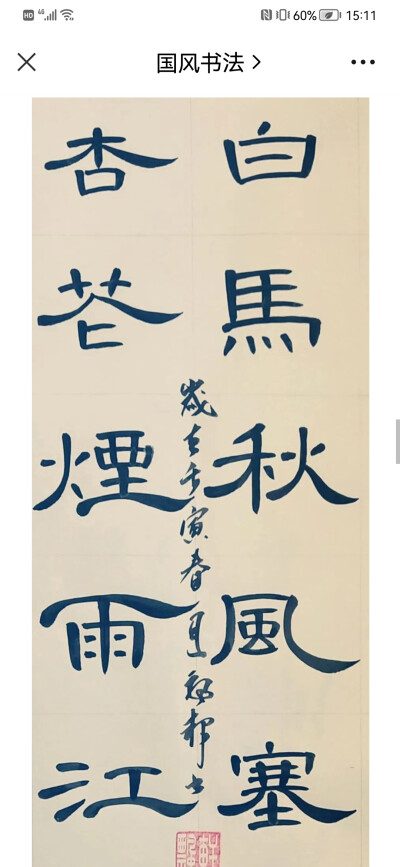 HD 4G 60% 15:11
国风书法
白馬秋風塞
杏花煙雨江
歲在壬寅春月